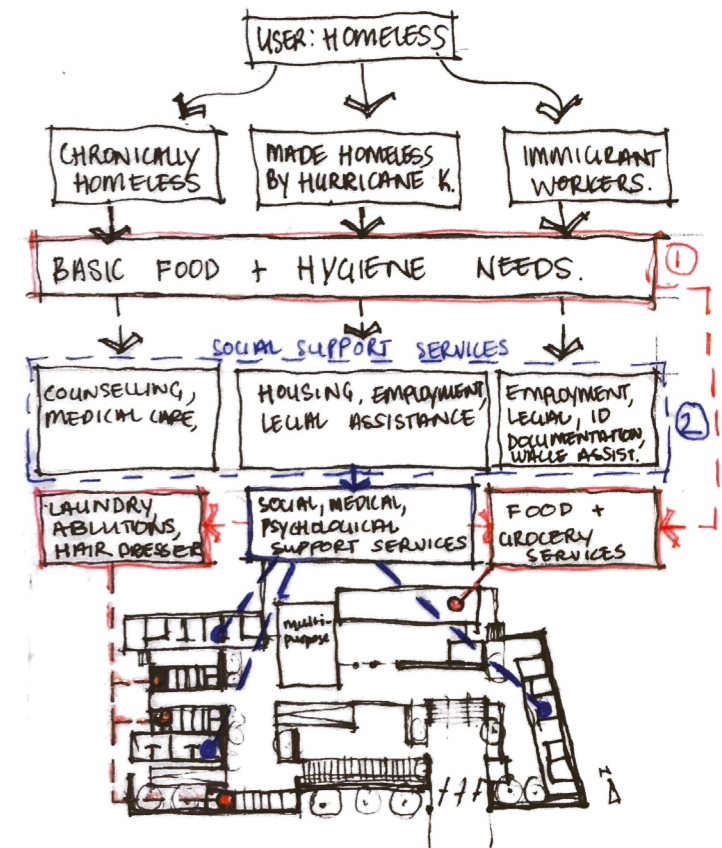 USER: HOMELESS
CHRONICALLY
HOMELESS
MADE HOMELESS
BY HURRICANE K.
IMMIGRANT
WORKERS.
BASIC FOOD + HYGIENE NEEDS.
1
SOCIAL SUPPORT SERVICES
COUNSELLING,
MEDICAL CARE,
HOUSING, EMPLOYMENT,
LEGAL ASSISTANCE
EMPLOYMENT,
LEGAL, ID
DOCUMENTATION,
WAGE ASSIST.
2
LAUNDRY
ABLUTIONS,
HAIR DRESSER
SOCIAL, MEDICAL,
PSYCHOLOGICAL
SUPPORT SERVICES
FOOD +
GROCERY
SERVICES
multi-
purpose
N